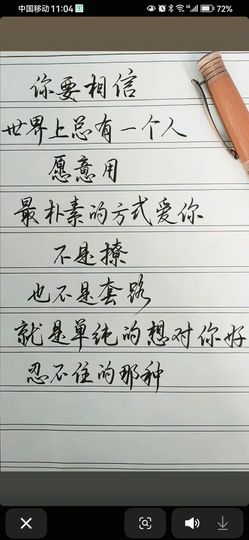 中国移动 11:04
72%
你要相信
世界上总有一个人
愿意用
最朴素的方式爱你
不是撩
也不是套路
就是单纯的想对你好
忍不住的那种